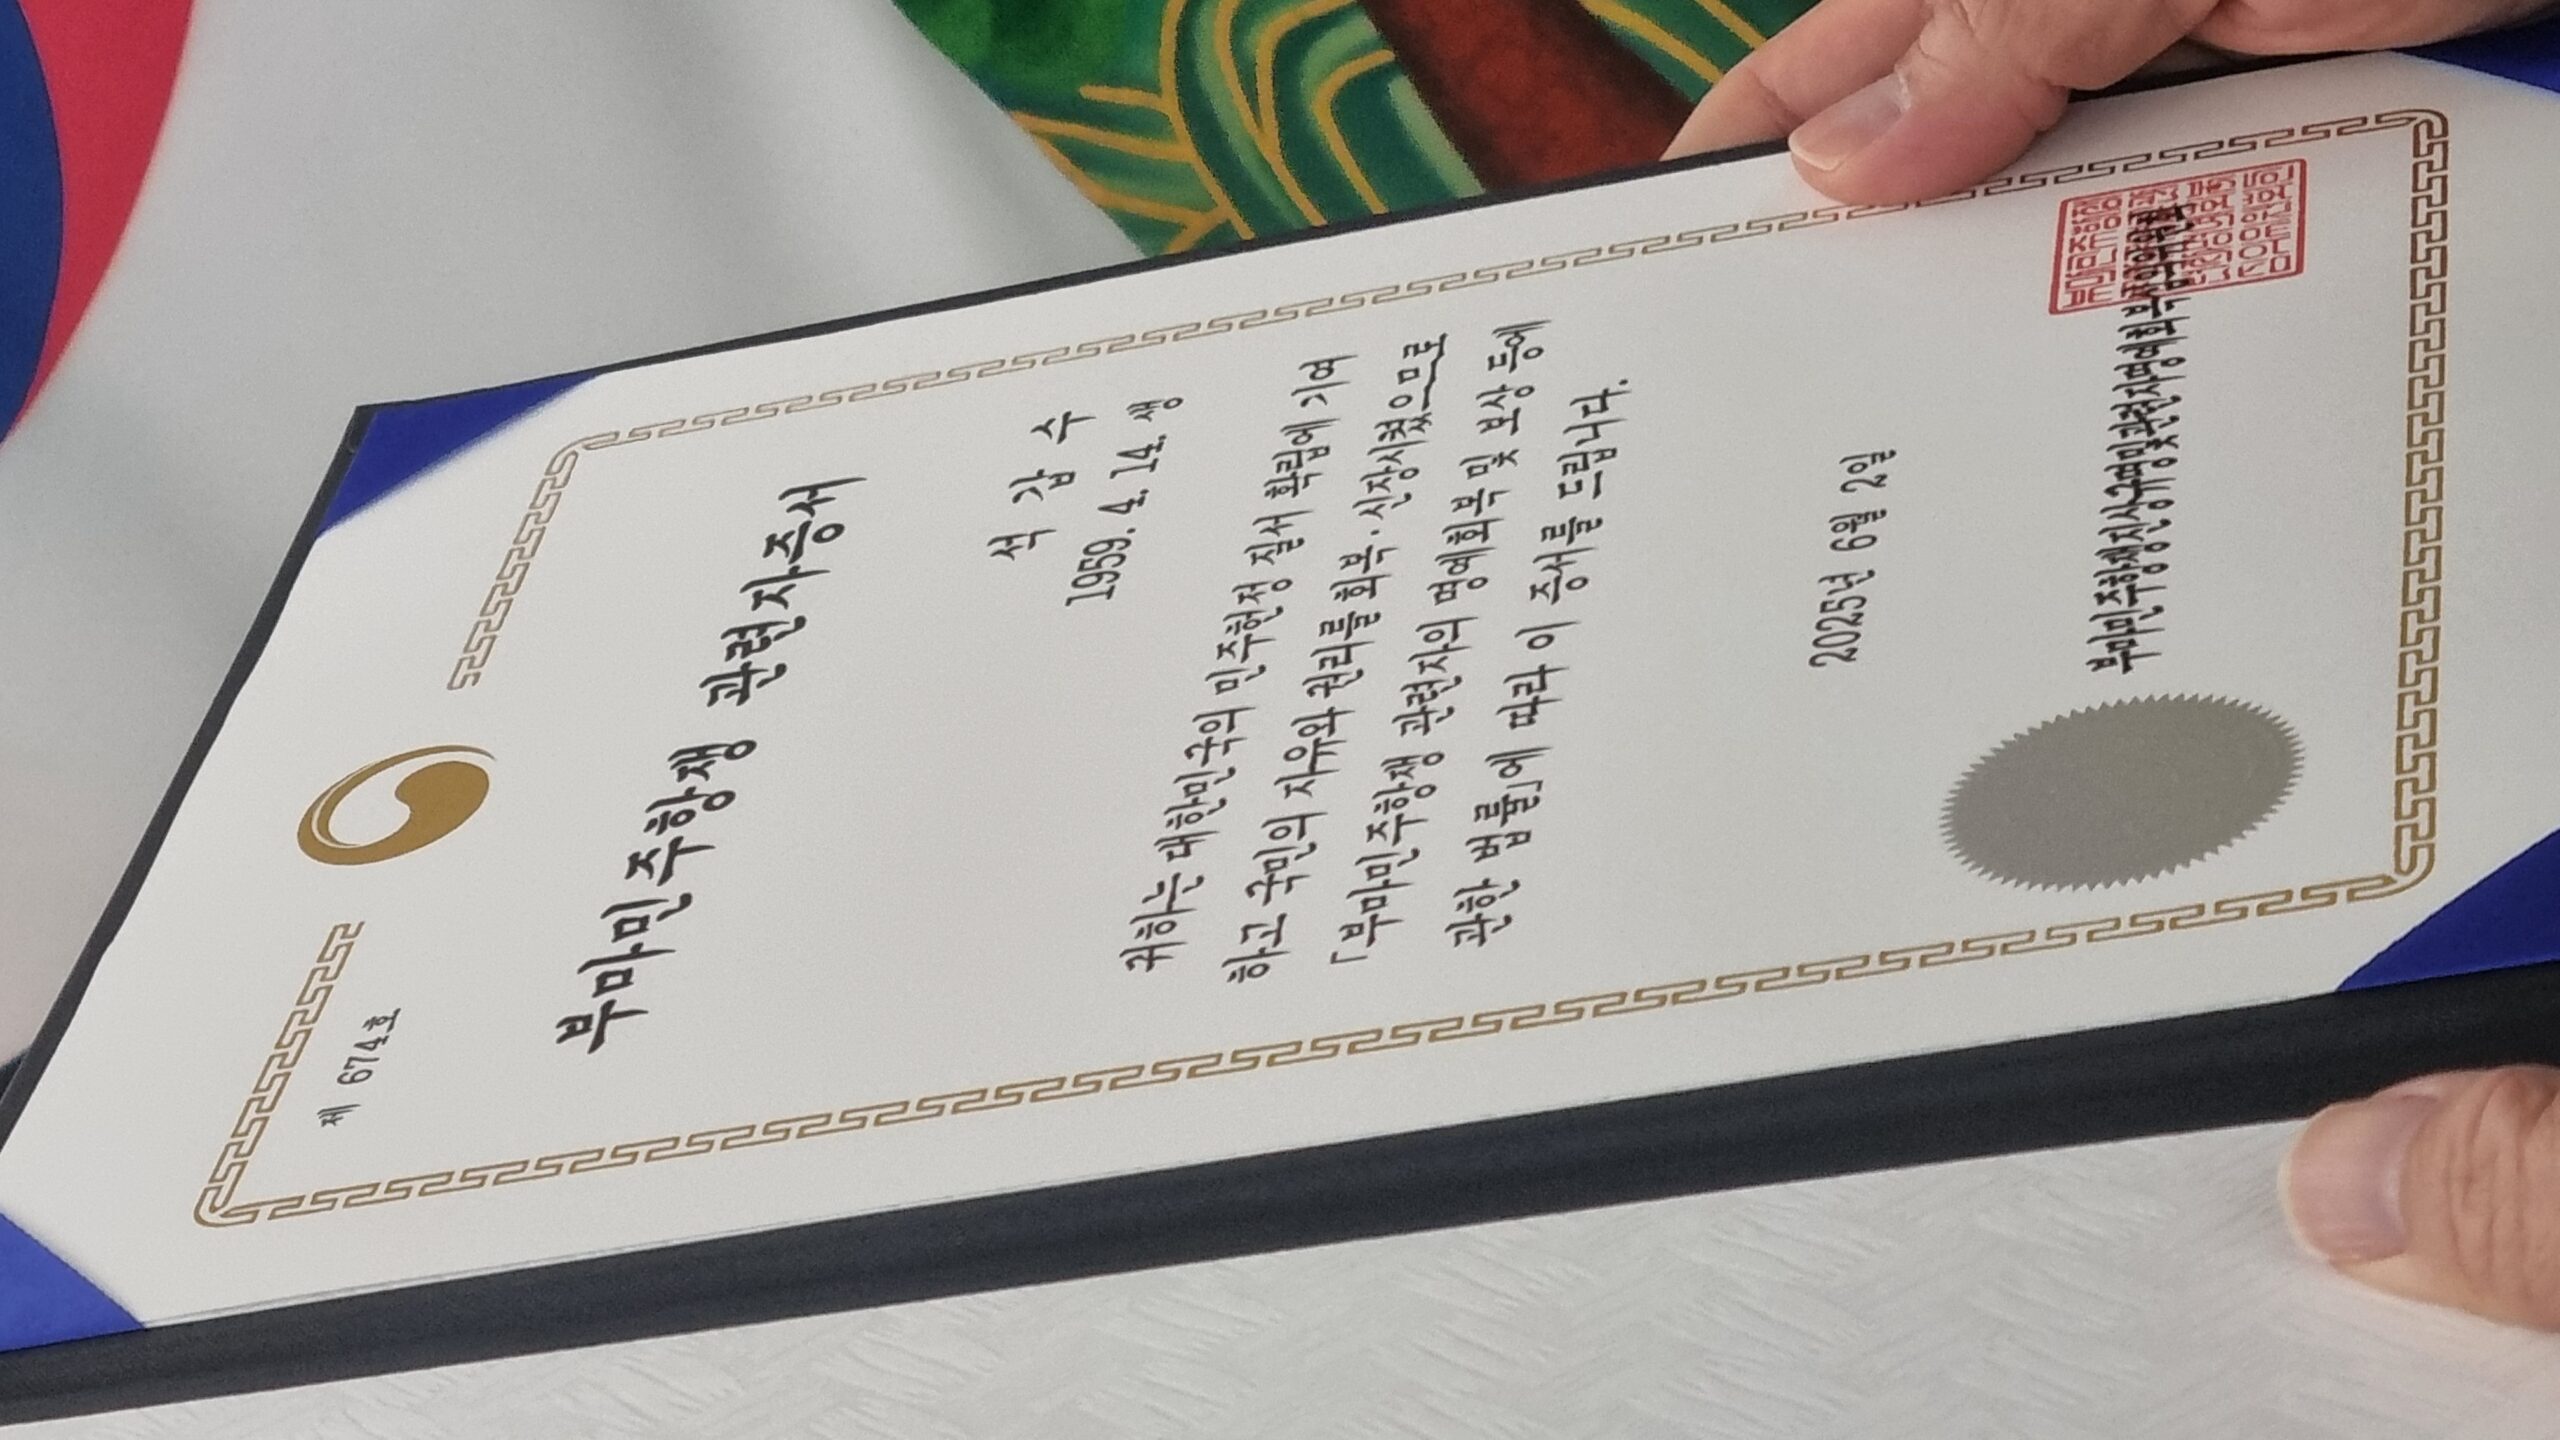 제 674호
부마민주항쟁 관련자증서
석 갑 수
1959. 4. 14. 생
귀하는 대한민국의 민주헌정 질서 확립에 기여
하고 국민의 자유와 권리를 회복·신장시켰으므로
「부마민주항쟁 관련자의 명예회복 및 보상 등에
관한 법률」에 따라 이 증서를 드립니다.
2025년 6월 2일
부마민주항쟁진상규명및관련자명예회복